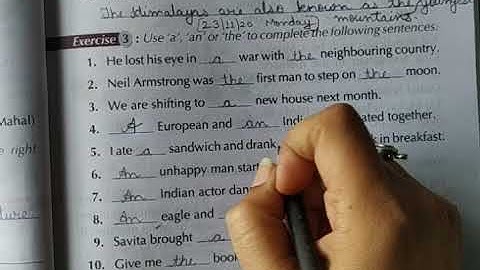 The Himalayas are also known as the youngest
(23|11|20 Monday) mountains.
Exercise 3 : Use 'a', 'an' or 'the' to complete the following sentences:
1. He lost his eye in a war with the neighbouring country.
2. Neil Armstrong was the first man to step on the moon.
3. We are shifting to a new house next month.
Mahal)
4. A European and an Indi ated together.
e right
5. I ate a sandwich and drank k in breakfast.
6. An unhappy man start
7. An Indian actor dan
8. An eagle and
9. Savita brought a
10. Give me the boo